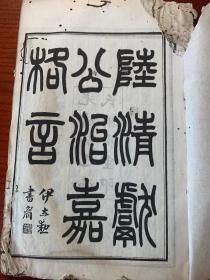 陸清獻
公治嘉
格言
伊立勲
書